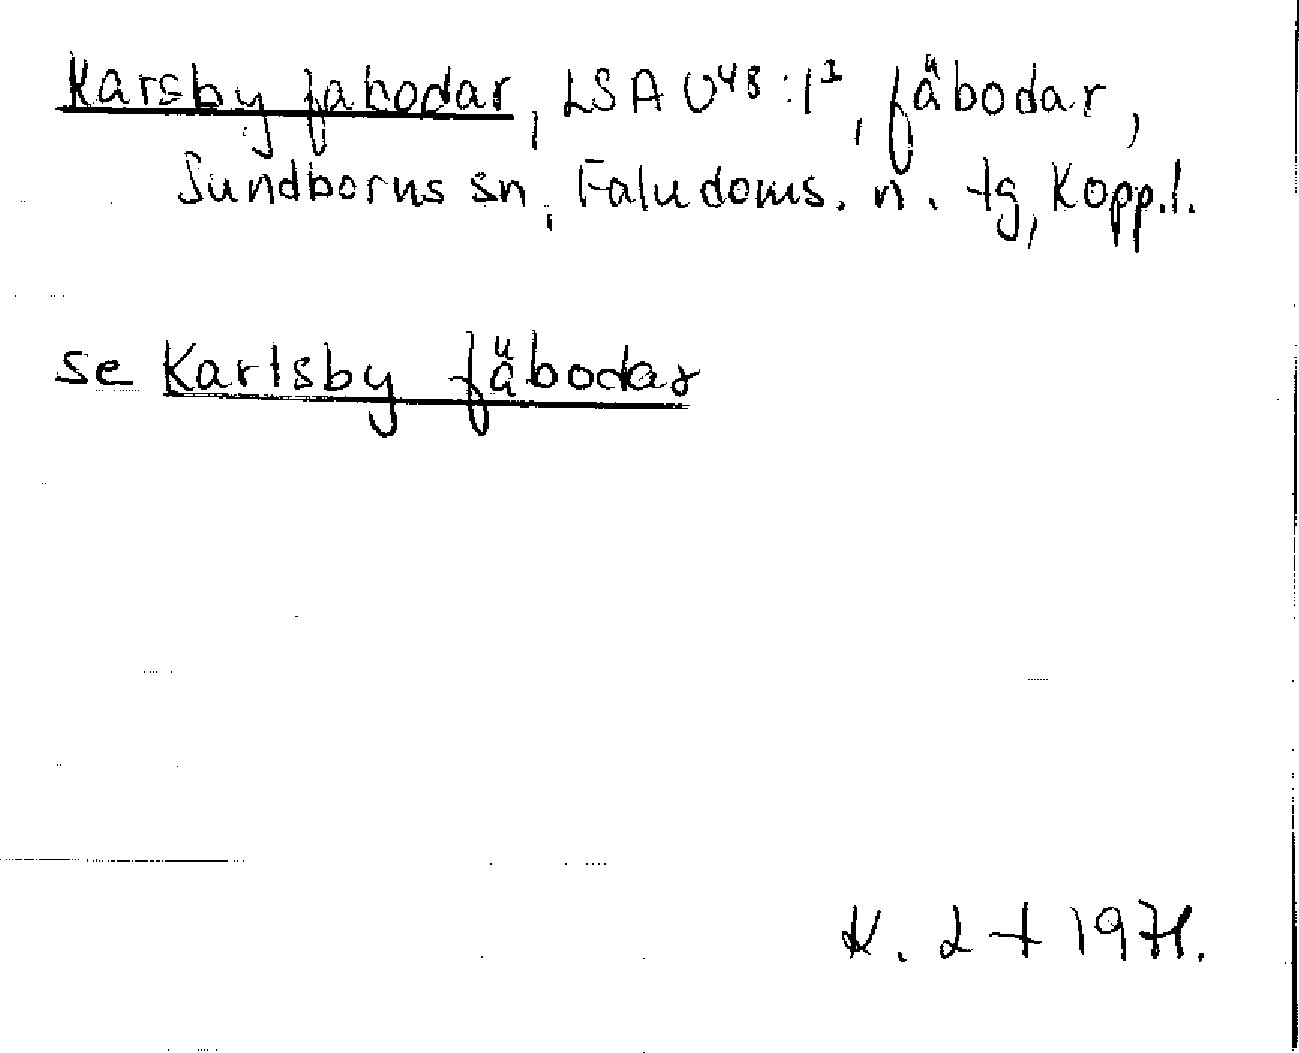 Karsby fabodar, LSA U48:1¹, fäbodar,
Sundborns sn, Falu doms. n. tg, Kopp.l.
se Karlsby fäbodar
K. 1971.